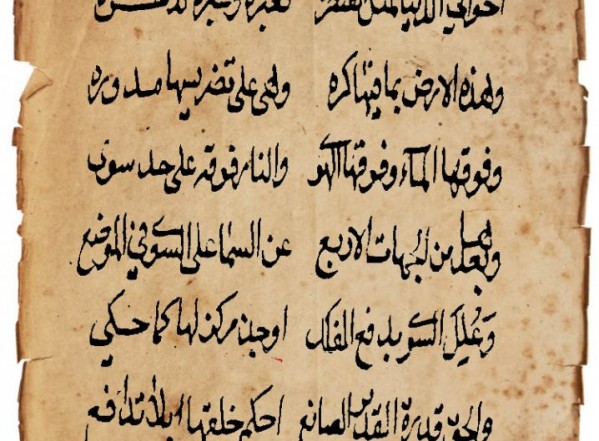 احوالي الدنيا لمن تفكر
وهذه الارض بما فيها كره وهي على تضريسها مدوره
وفوقها الماء وفوقها الهو والنار فوقه على حد سوى
وبعدها من الجهات الاربع عن السما على السوي في الموضع
وعلل السو بدفع الفلك او جذب مركز لها كما حكي
والحق قدرة القدير الصانع احكم خلقها بلا تدافع